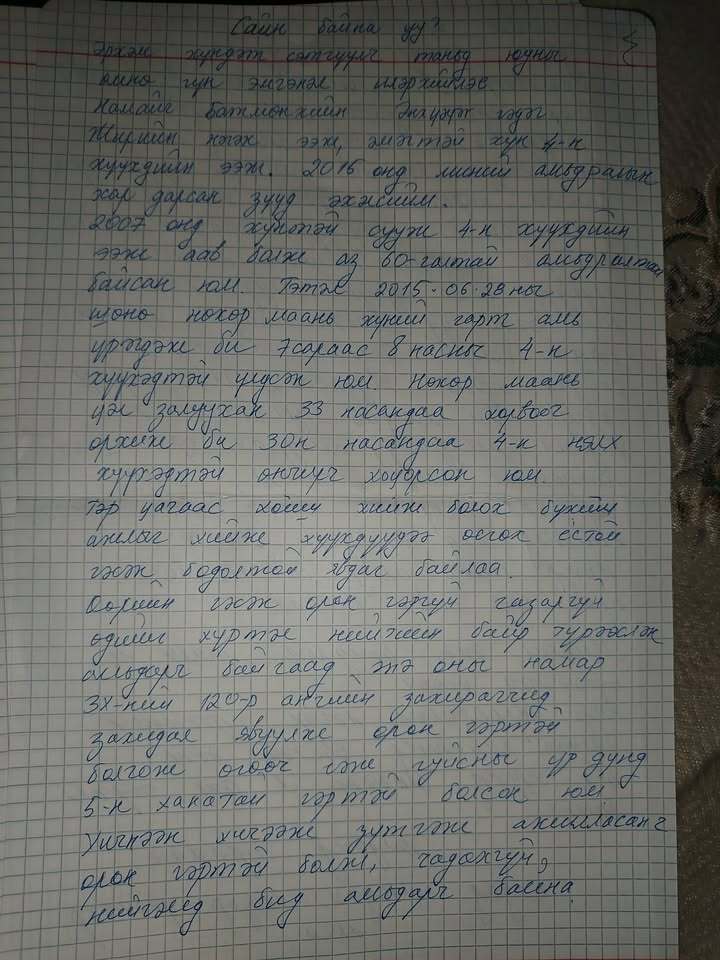 Сайн байна уу?
Эрхэм хүндэт сэтгүүлч таньд юуны
өмнө гүн эмгэнэл илэрхийлэе
Намайг Батмөнхийн Энхцэцэг гэдэг
Жирийн нэгэн ээж, эмэгтэй хүн 4-н
хүүхдийн ээж. 2016 онд миний амьдралын
хар дарсан зүүд эхэлсийм.
2007 онд хүнтэй сууж 4-н хүүхдийн
ээж аав болж аз 60-галтай амьдралтай
байсан юм. Гэтэл 2015.06.28 ны
шөнө нөхөр маань хүний гарт амь
үрэгдэж би 7 сараас 8 насны 4-н
хүүхэдтэй үлдсэн юм. Нөхөр маань
цэл залуухан 33 насандаа хорвоог
орхиж би 30н насандаа 4-н нялх
хүүхэдтэй өнчирч хоцорсон юм.
Тэр цагаас хойш хийж болох бүхий л
ажлыг хийж хүүхдүүдээ өсгөх ёстой
гэж бодолтой явдаг байлаа.
Өөрийн гэж орон гэргүй газаргүй
өдийг хүртэл нийтийн байр түрээслэн
амьдарч байгаад энэ оны намар
ЗХ-ний 120-р ангийн захирагчид
захидал явуулж орон гэртэй
болгож өгөөч гэж гуйсны үр дүнд
5-н ханатай гэртэй болсон юм.
Үнэхээр хичээж зүтгэж ажилласан ч
орон гэртэй болж, чадахгүй,
нийгэмд бид амьдарч байна.